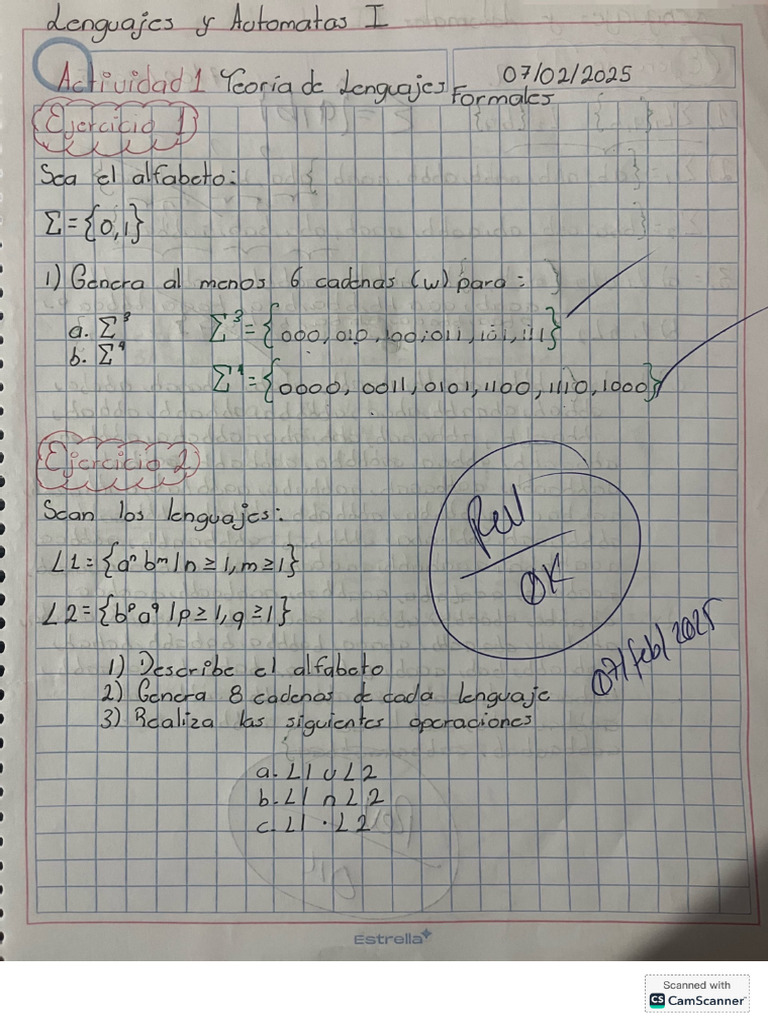 Lenguajes y Automatas I
Actividad 1 Teoría de Lenguajes Formales
07/02/2025
Ejercicio 1
Sea el alfabeto:
Σ={0,1}
1) Genera al menos 6 cadenas (w) para:
a. Σ³ Σ³={000,010,100,011,101,111}
b. Σ⁴
Σ⁴={0000,0011,0101,1100,1110,1000}
Ejercicio 2
Sean los lenguajes:
L1={aⁿbᵐ|n≥1,m≥1}
L2={bᵖa^q|p≥1,q≥1}
Rev
OK
07/feb/2025
1) Describe el alfabeto
2) Genera 8 cadenas de cada lenguaje
3) Realiza las siguientes operaciones
a. L1 ∪ L2
b. L1 ∩ L2
c. L1 · L2
Estrella
Scanned with
CS CamScanner